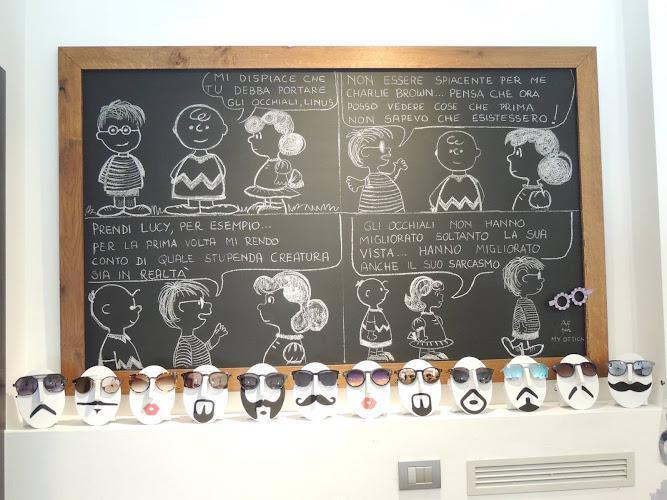 MI DISPIACE CHE
TU DEBBA PORTARE
GLI OCCHIALI, LINUS
NON ESSERE SPIACENTE PER ME
CHARLIE BROWN... PENSA CHE ORA
POSSO VEDERE COSE CHE PRIMA
NON SAPEVO CHE ESISTESSERO!
PRENDI LUCY, PER ESEMPIO...
PER LA PRIMA VOLTA MI RENDO
CONTO DI QUALE STUPENDA CREATURA
SIA IN REALTÀ
GLI OCCHIALI NON HANNO
MIGLIORATO SOLTANTO LA SUA
VISTA... HANNO MIGLIORATO
ANCHE IL SUO SARCASMO
MY OTTICA